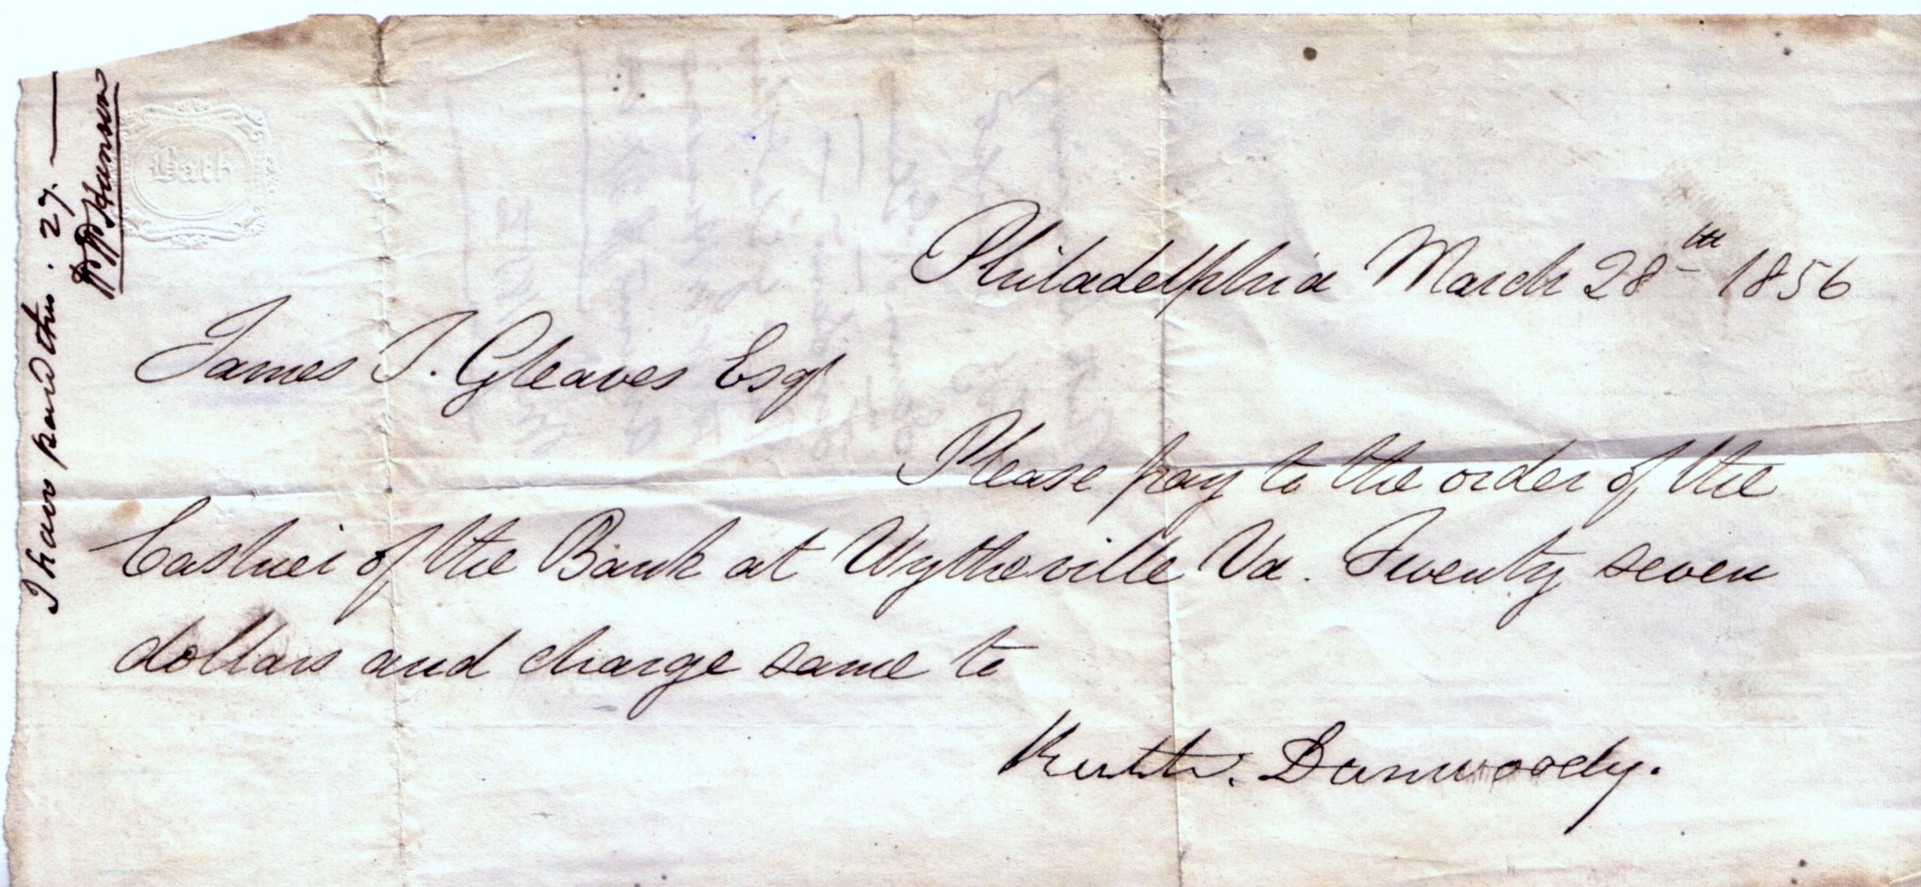 Bath
Philadelphia March 28th 1856
James T. Gleaves Esqr
Please pay to the order of the
Cashier of the Bank at Wytheville Va. Twenty seven
dollars and charge same to
Ruth. Dunwoody.
I have paid this. 27.
Hanson